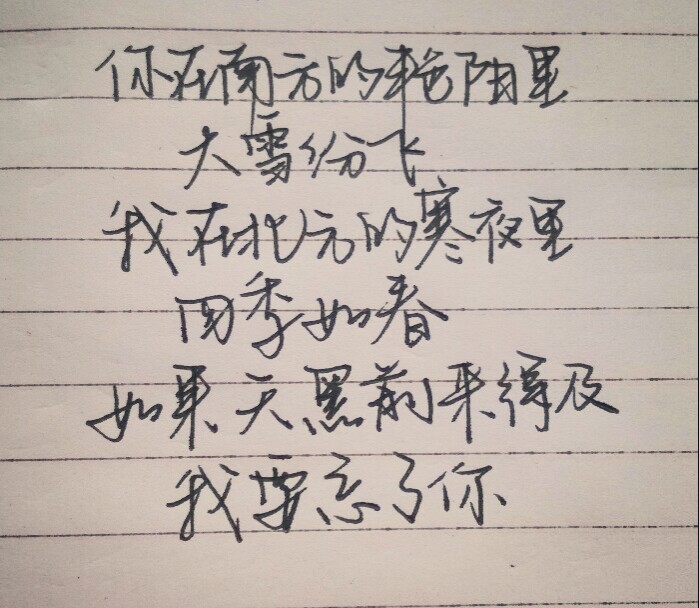 你在南方的艳阳里
大雪份飞
我在北方的寒夜里
四季如春
如果天黑前来得及
我要忘了你